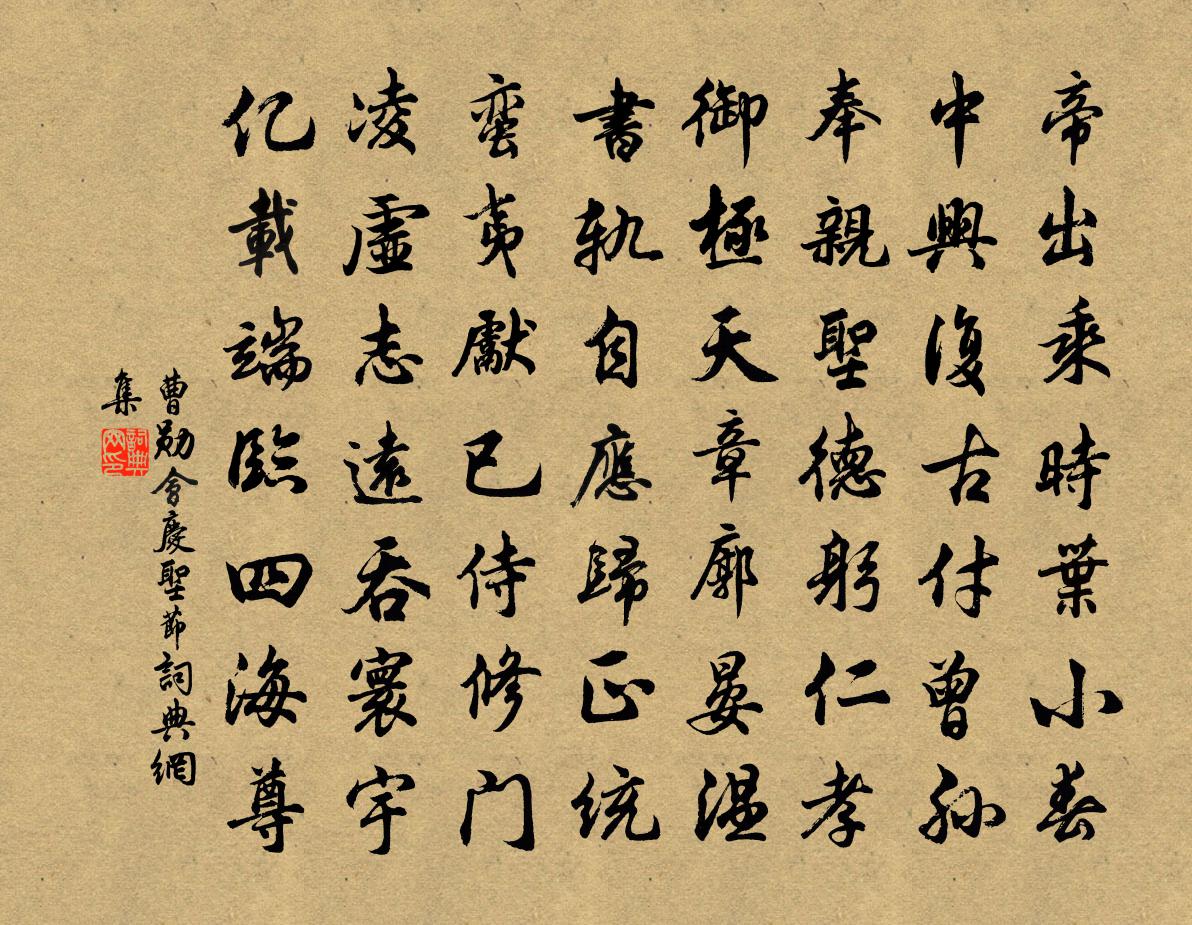 帝出乘時葉小春
中興復古付曾孫
奉親聖德躬仁孝
御極天章廓晏温
書軌自應歸正統
蛮夷獻已侍修门
凌虛志遠吞寰宇
亿載端臨四海尊
曹勛會慶聖節詞典網
集
詞典網印